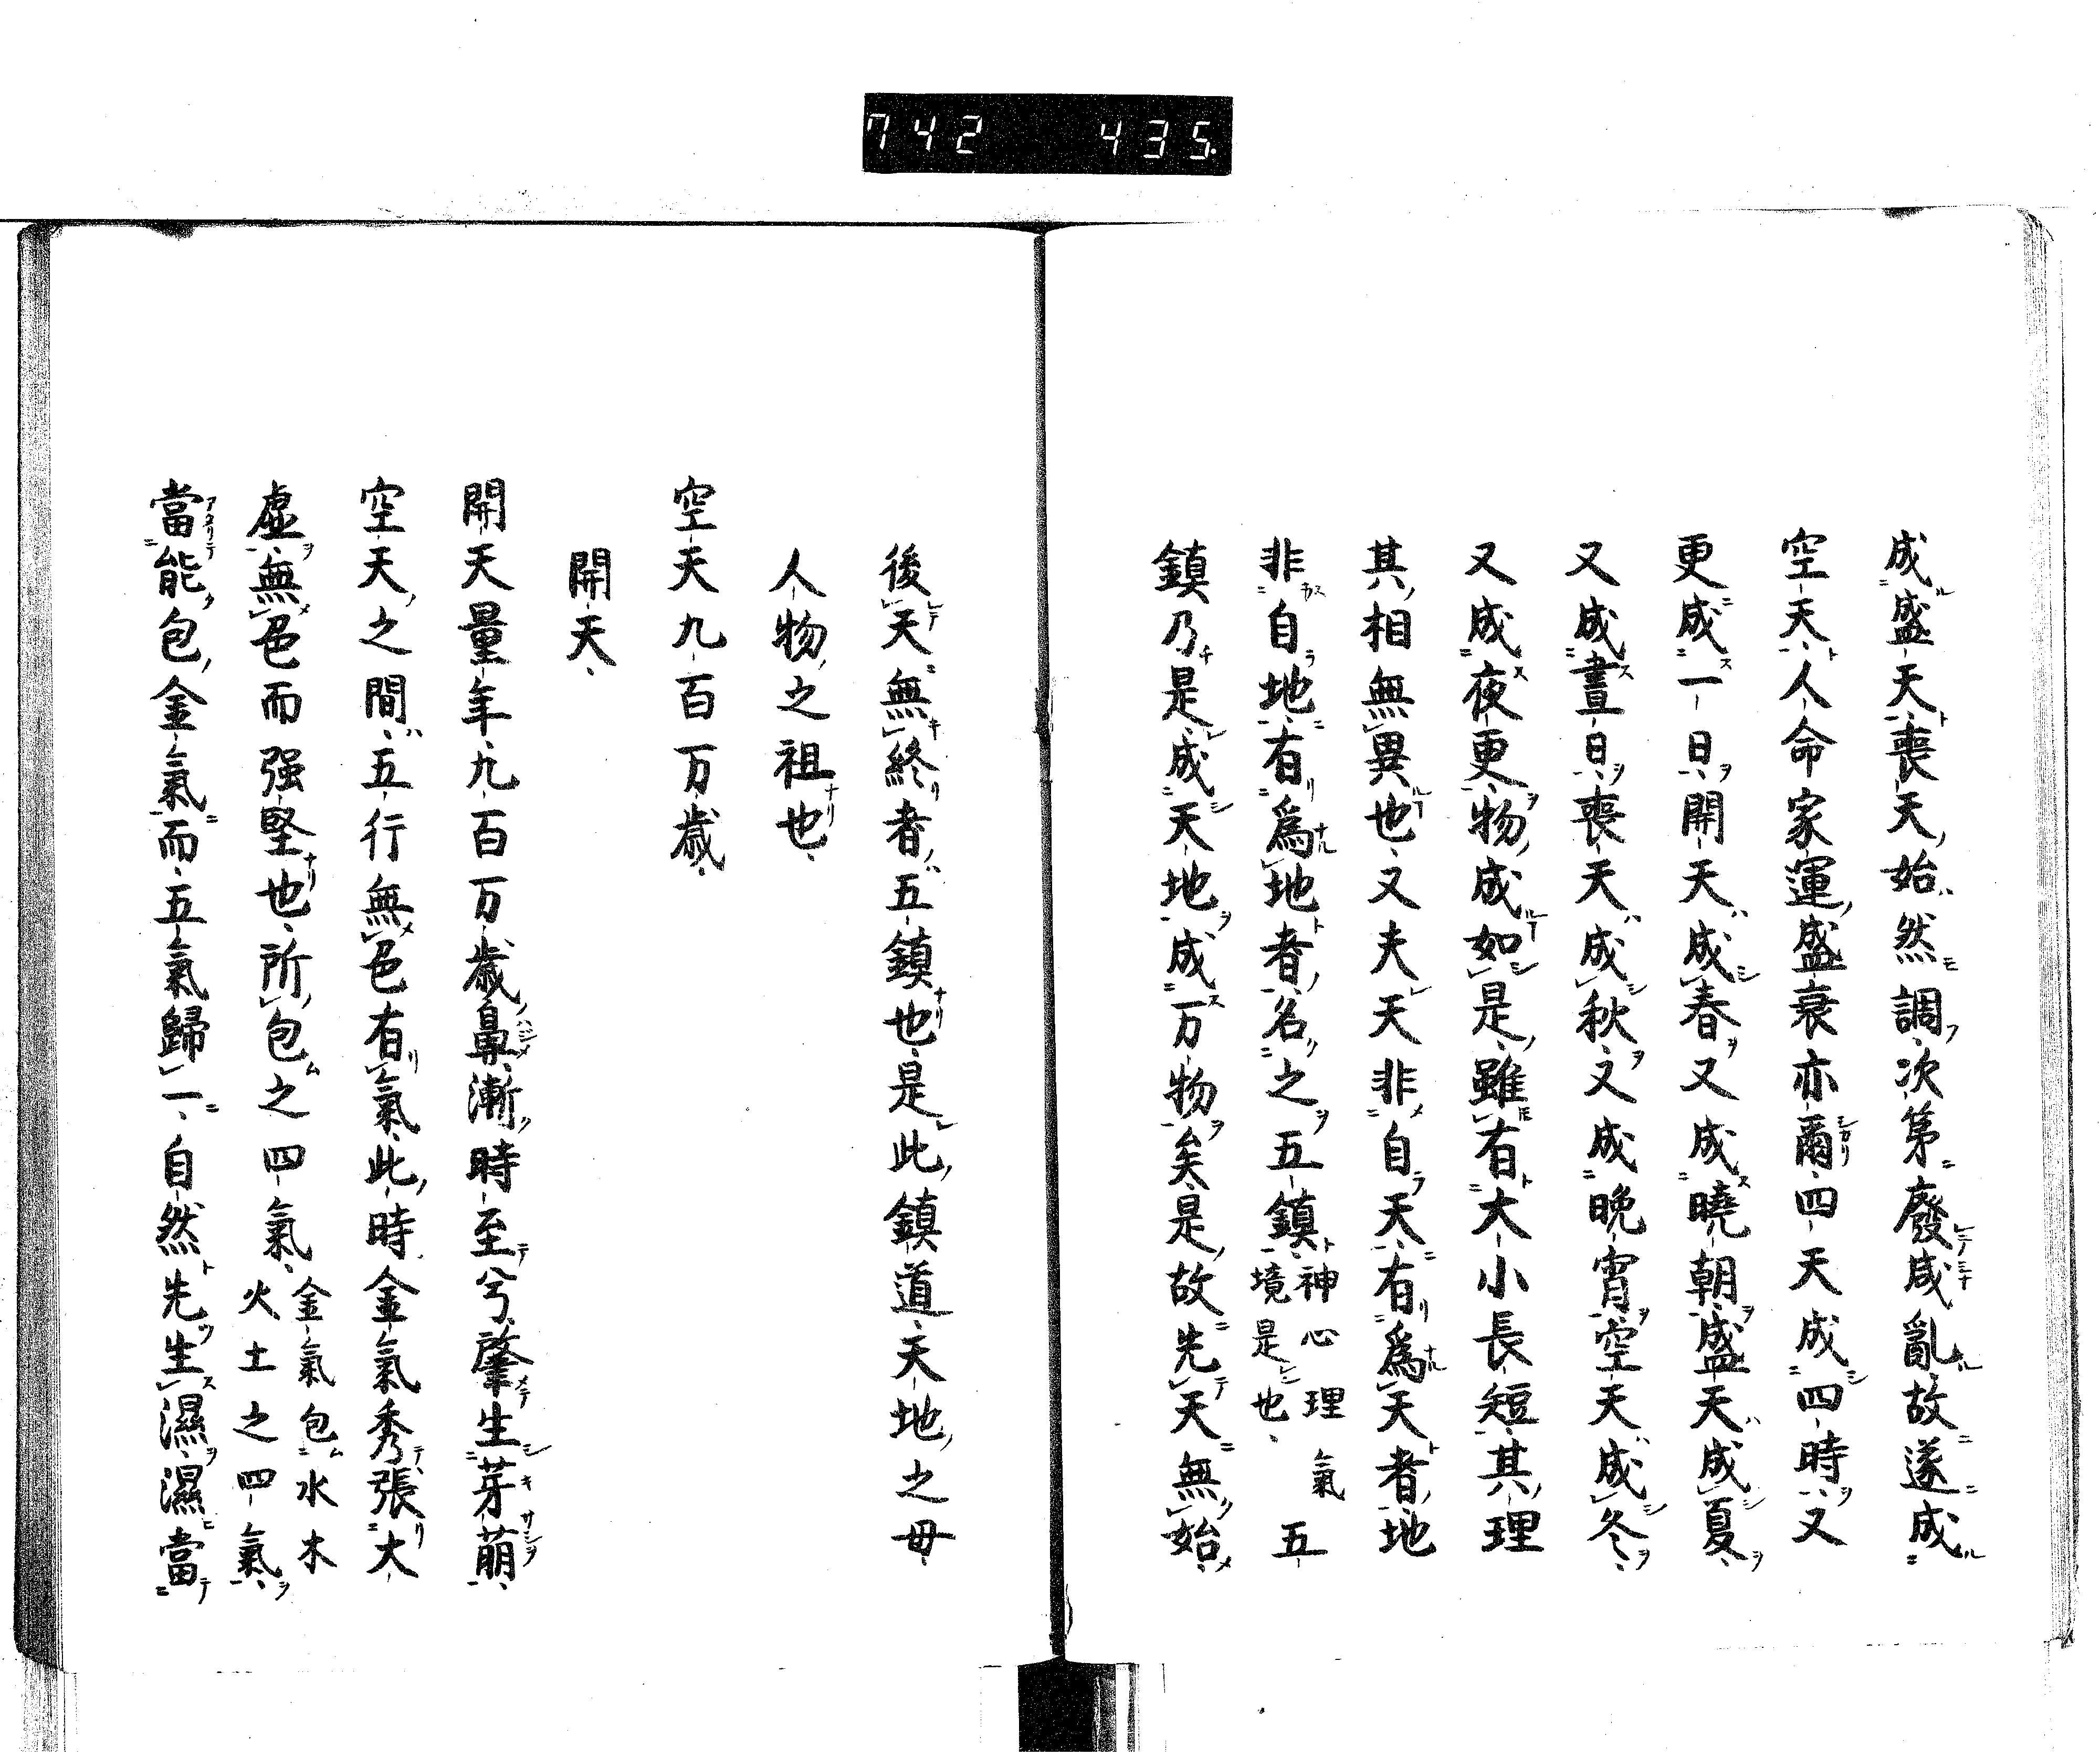 742 435
成盛天喪天始然調次第廢咸亂故遂成
空天人命家運盛衰亦爾四天成四時又
更成一日開天成春又成曉朝盛天成夏
又成晝日喪天成秋又成晩宵空天成冬
又成夜更物成如是雖有大小長短其理
其相無異也又夫天非自天有爲天者地
非自地有爲地者名之五鎮神心理氣境是也五
鎮乃是成天地成万物矣是故先天無始
後天無終者五鎮也是此鎮道天地之毋
人物之祖也
空天九百万歲
開天
開天量年九百万歲鼻漸時至兮肇生芽萠
空天之間五行無色有氣此時金氣秀張大
虛無色而强堅也所包之四氣金氣包水木火土之四氣
當能包金氣而五氣歸一自然先生濕濕當